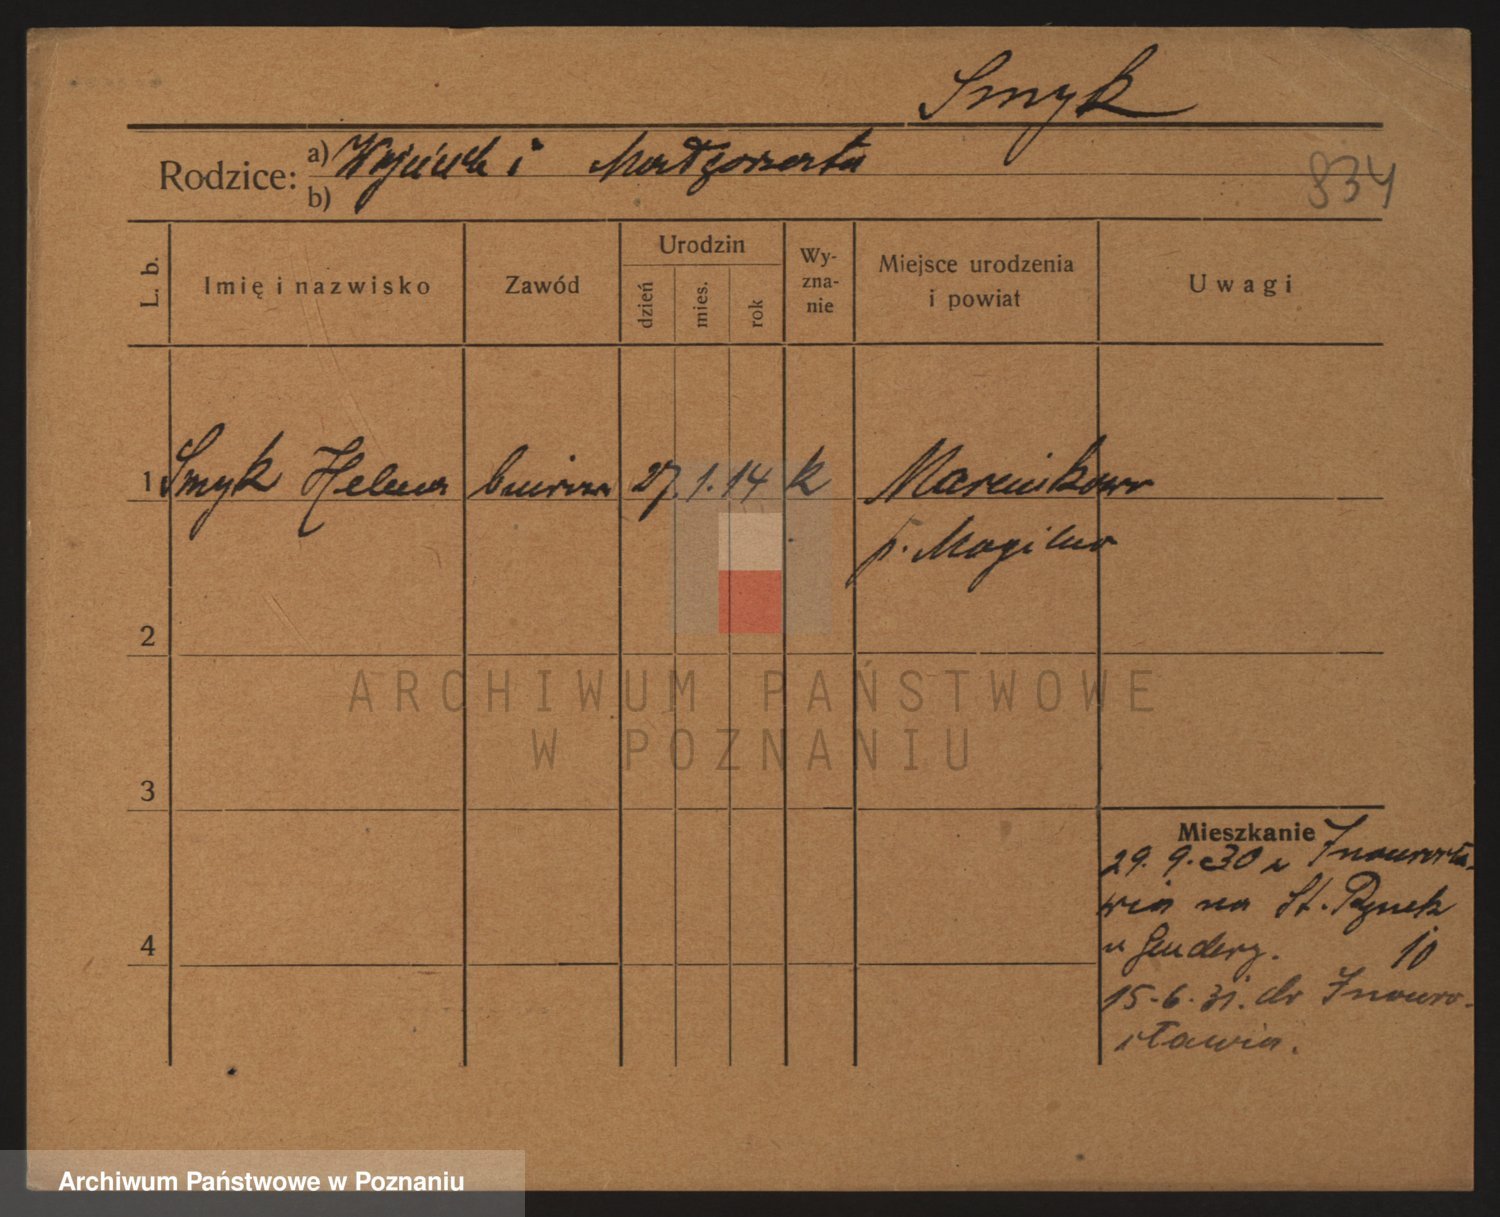 Smyk
Rodzice: a) Wojciech i Małgorzata
b)
834
L. b. Imię i nazwisko Zawód Urodzin dzień mies. rok Wy-zna-nie Miejsce urodzenia i powiat Uwagi
1 Smyk Helena 27. 1. 14 k Marcinkowo
p. Mogilno
2
3
4
Mieszkanie
29. 9. 30 z Inowrocła-
wia na St. Rynek
u 10
15.6.31. do Inowro-
cławia.
ARCHIWUM PAŃSTWOWE
W POZNANIU
Archiwum Państwowe w Poznaniu